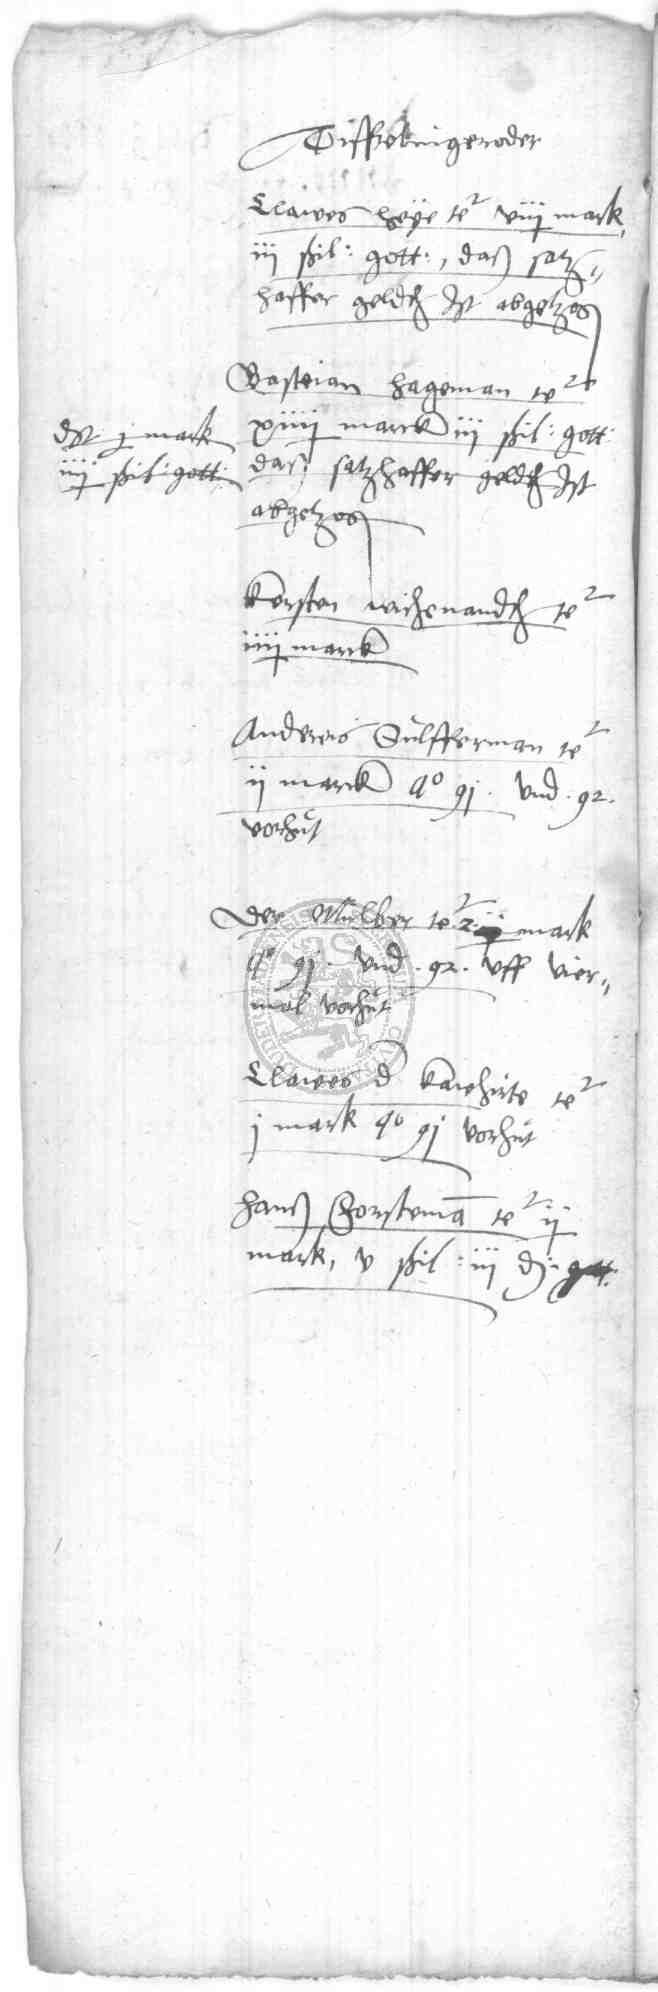 Tifftebingeroder
Clawes heÿe te² viij mark
iij ßil: gott:, daß satz,,
haffer geldt Ist abgetzog
Bastian hageman te²
xiiij marck iij ßil: gott:
daß satzhaffer geldt Ist
abgetzog
dt j mark
iiij ßil: gott:
Kersten wichenandt te²
iiij marck
Andereis Sülfferman te²
ij marck ao 91. vnd .92.
vorhüt
Der Mülber te² 2. mark
ao 91. vnd .92. vff vier,,
mal vorhüt
Clawes d kawhirte te²
j mark ao 91 vorhüt
hanß Forstemā te² ij
mark, v ßil: iij d: gott: